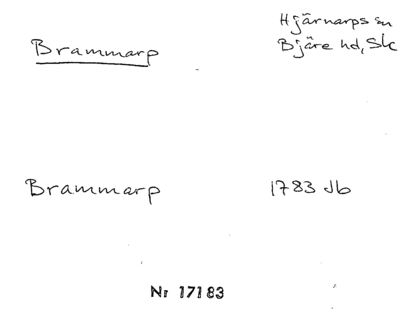 Brammarp
Hjärnarps sn
Bjäre hd, Sk
Brammarp
1783 Jb
Nr 17183